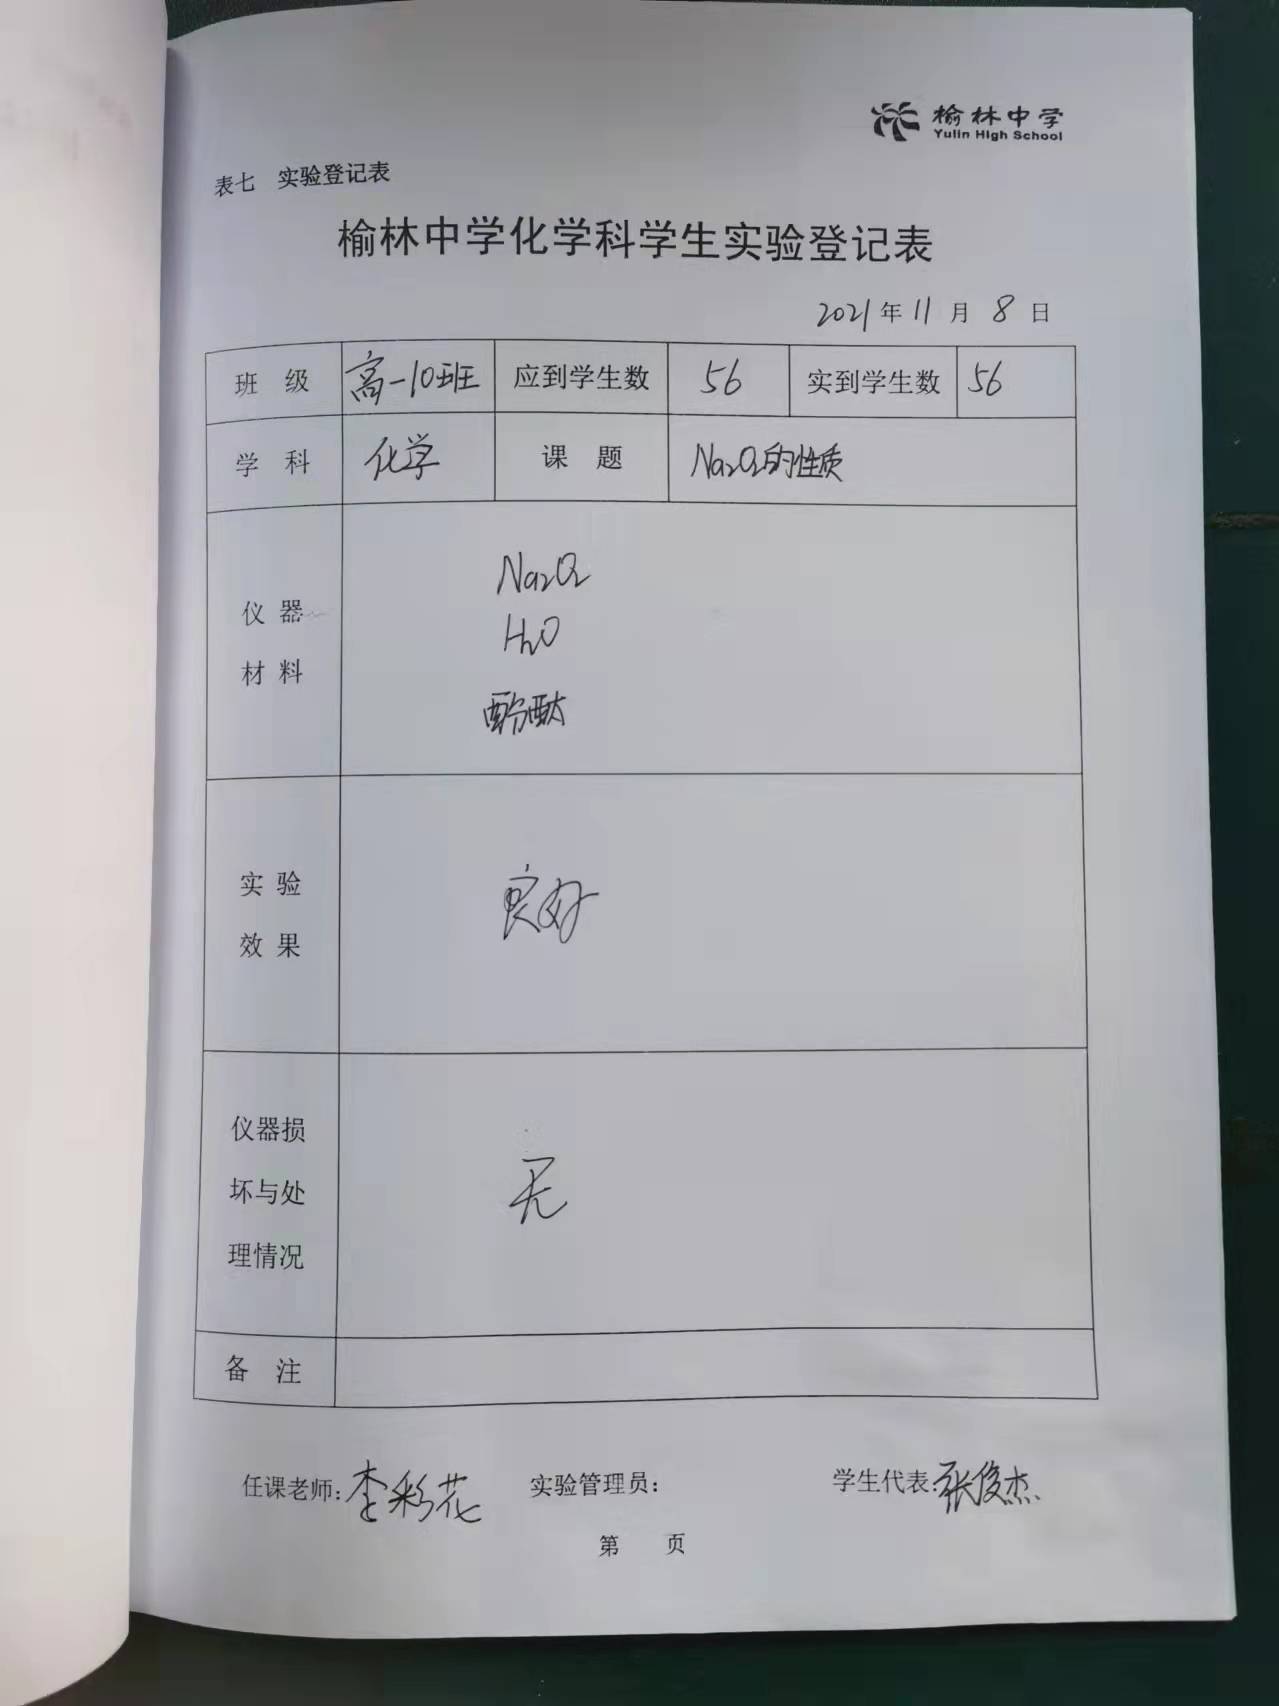 榆林中学
Yulin High School
表七 实验登记表
榆林中学化学科学生实验登记表
2021年11月8日
班 级 高一10班 应到学生数 56 实到学生数 56
学 科 化学 课 题 Na₂O₂的性质
仪 器
材 料
Na₂O₂
H₂O
酚酞
实 验
效 果
良好
仪器损
坏与处
理情况
无
备 注
任课老师:李彩花 实验管理员: 学生代表:张俊杰
第 页